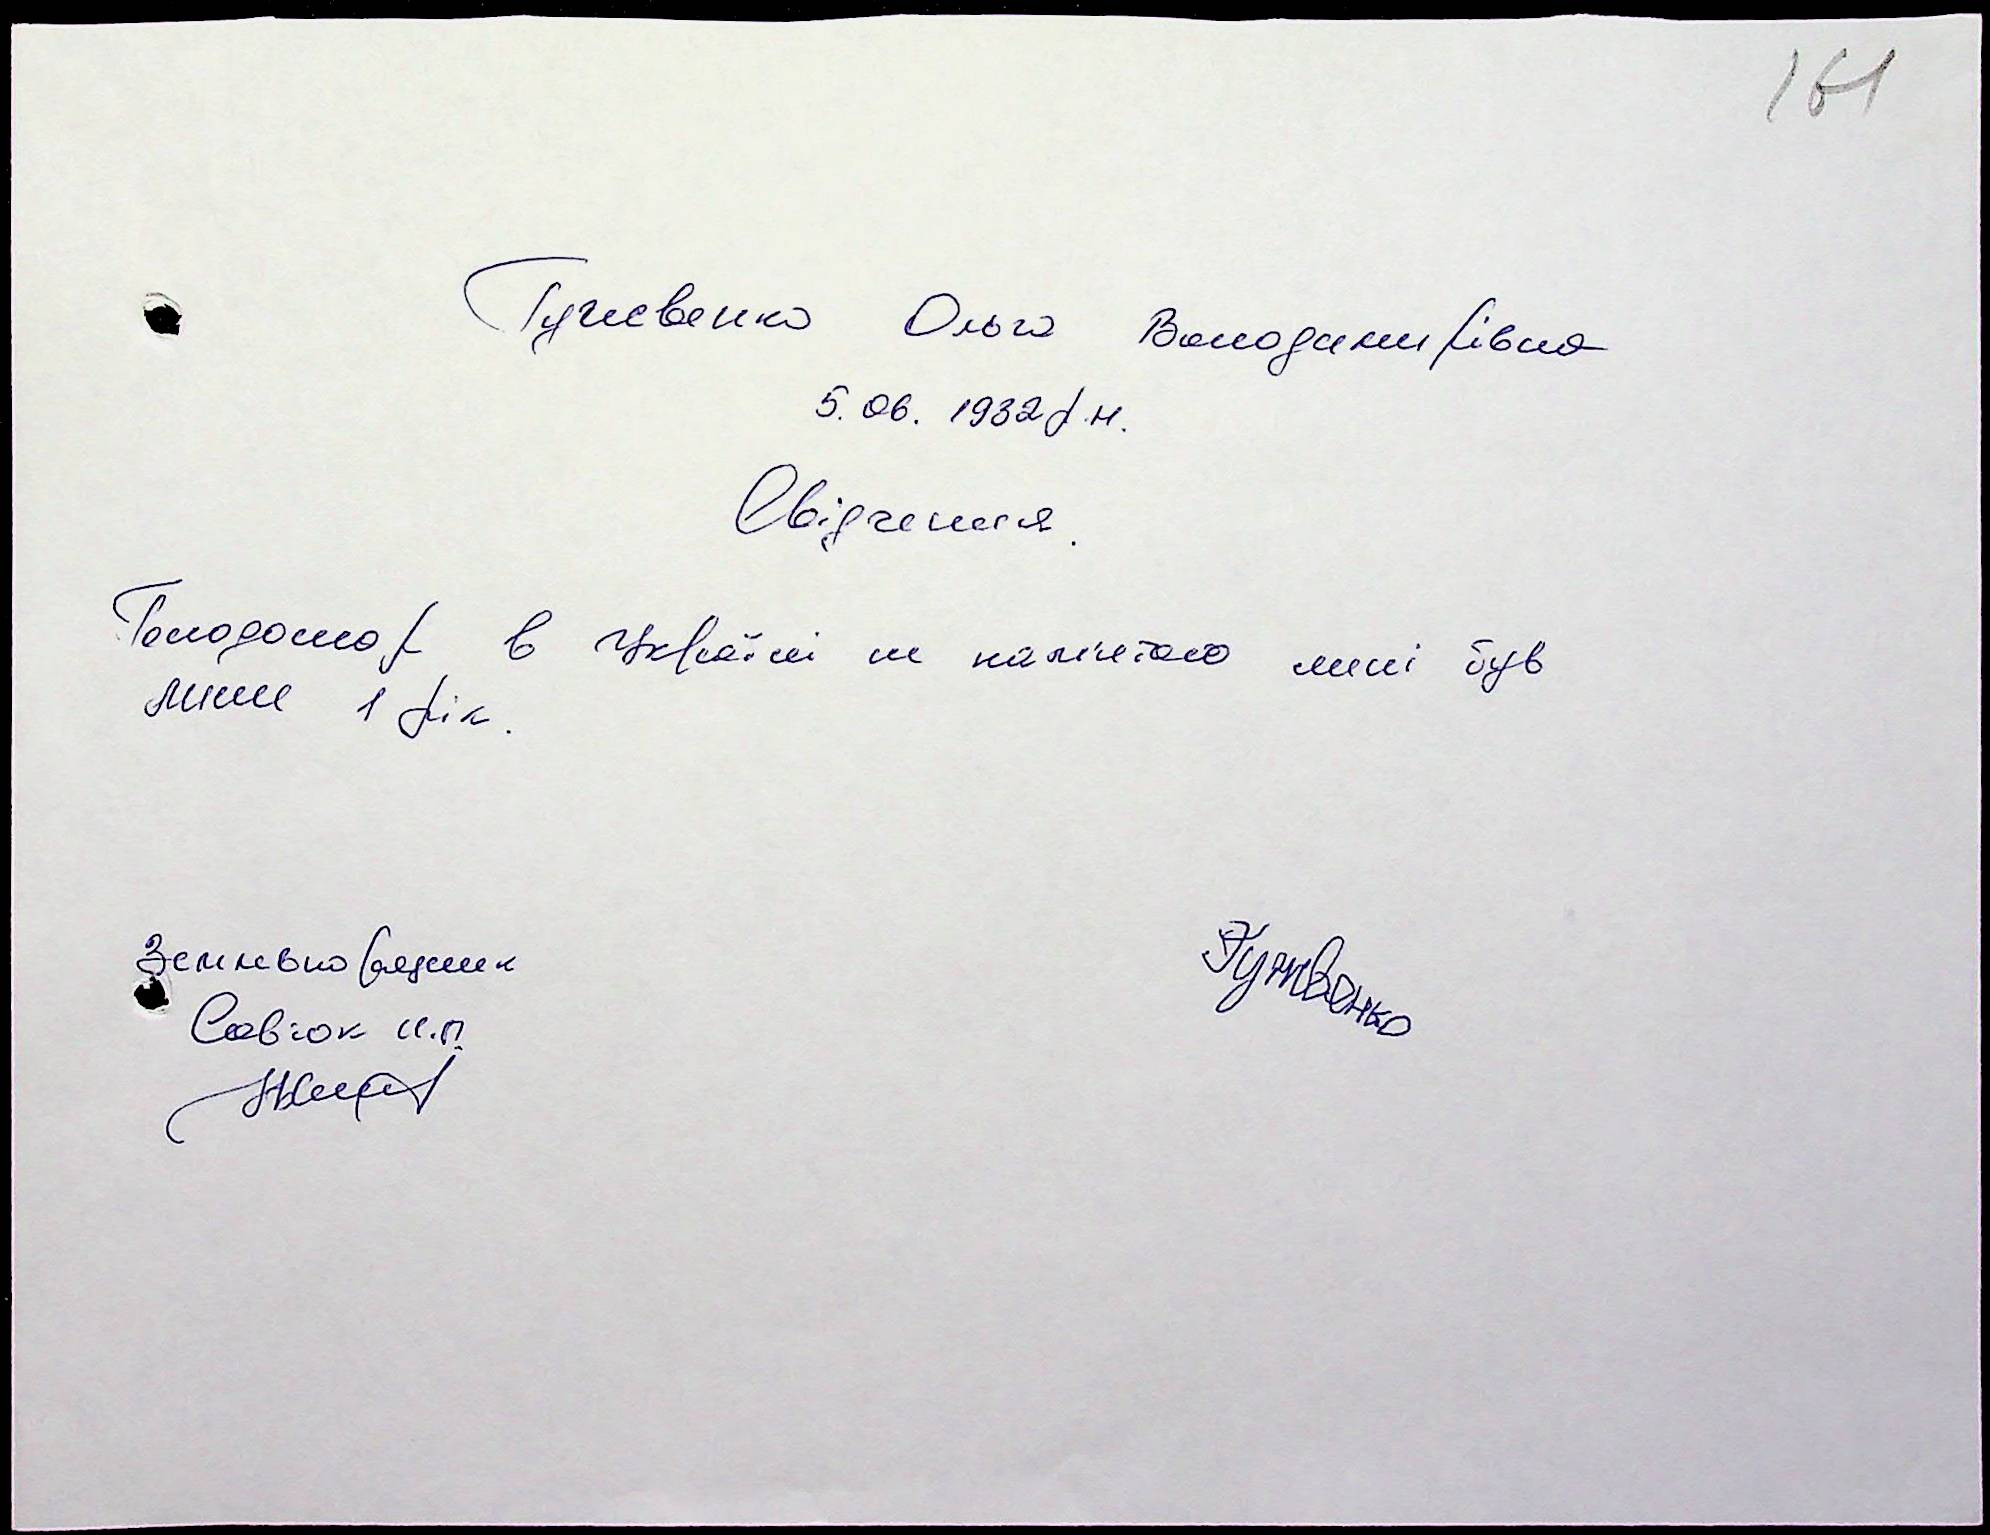 161
Гужвенко Ольга Володимирівна
5.06.1932 р.н.
Свідчення.
Голодомор в Україні не памятаю мені був
лише 1 рік.
Землевпорядник
Савчок Н.П.
Гужвенко